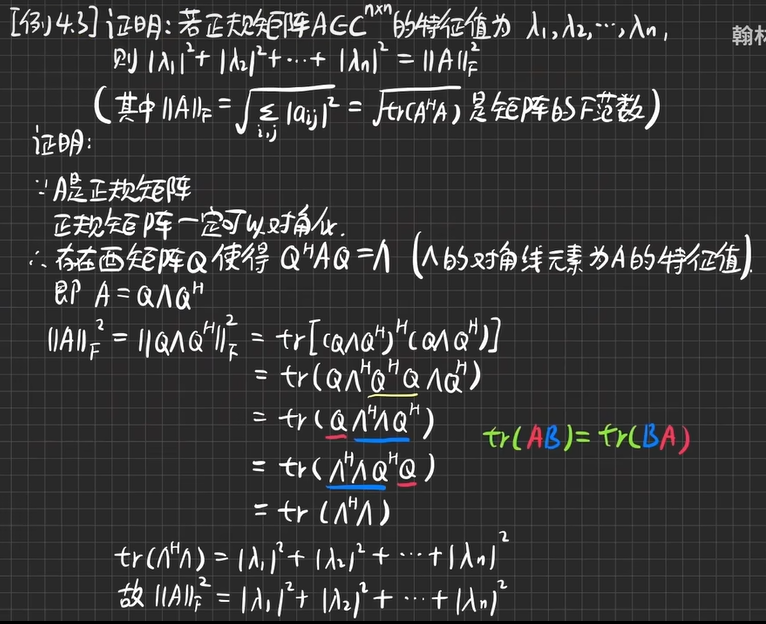 [例4.3] 证明: 若正规矩阵A∈C^{n×n}的特征值为 λ₁, λ₂, ⋯, λₙ,
翰林
则 |λ₁|² + |λ₂|² + ⋯ + |λₙ|² = ||A||_F²
(其中 ||A||_F = √(Σ_{i,j} |a_{ij}|²) = √(tr(A^H A)) 是矩阵的F范数)
证明:
∵ A是正规矩阵
正规矩阵一定可以对角化.
∴ 存在酉矩阵Q使得 Q^H A Q = Λ (Λ的对角线元素为A的特征值).
即 A = QΛQ^H
||A||_F² = ||QΛQ^H||_F² = tr[(QΛQ^H)^H (QΛQ^H)]
= tr(QΛ^H Q^H QΛQ^H)
= tr(QΛ^H ΛQ^H)
tr(AB) = tr(BA)
= tr(Λ^H ΛQ^H Q)
= tr(Λ^H Λ)
tr(Λ^H Λ) = |λ₁|² + |λ₂|² + ⋯ + |λₙ|²
故 ||A||_F² = |λ₁|² + |λ₂|² + ⋯ + |λₙ|²